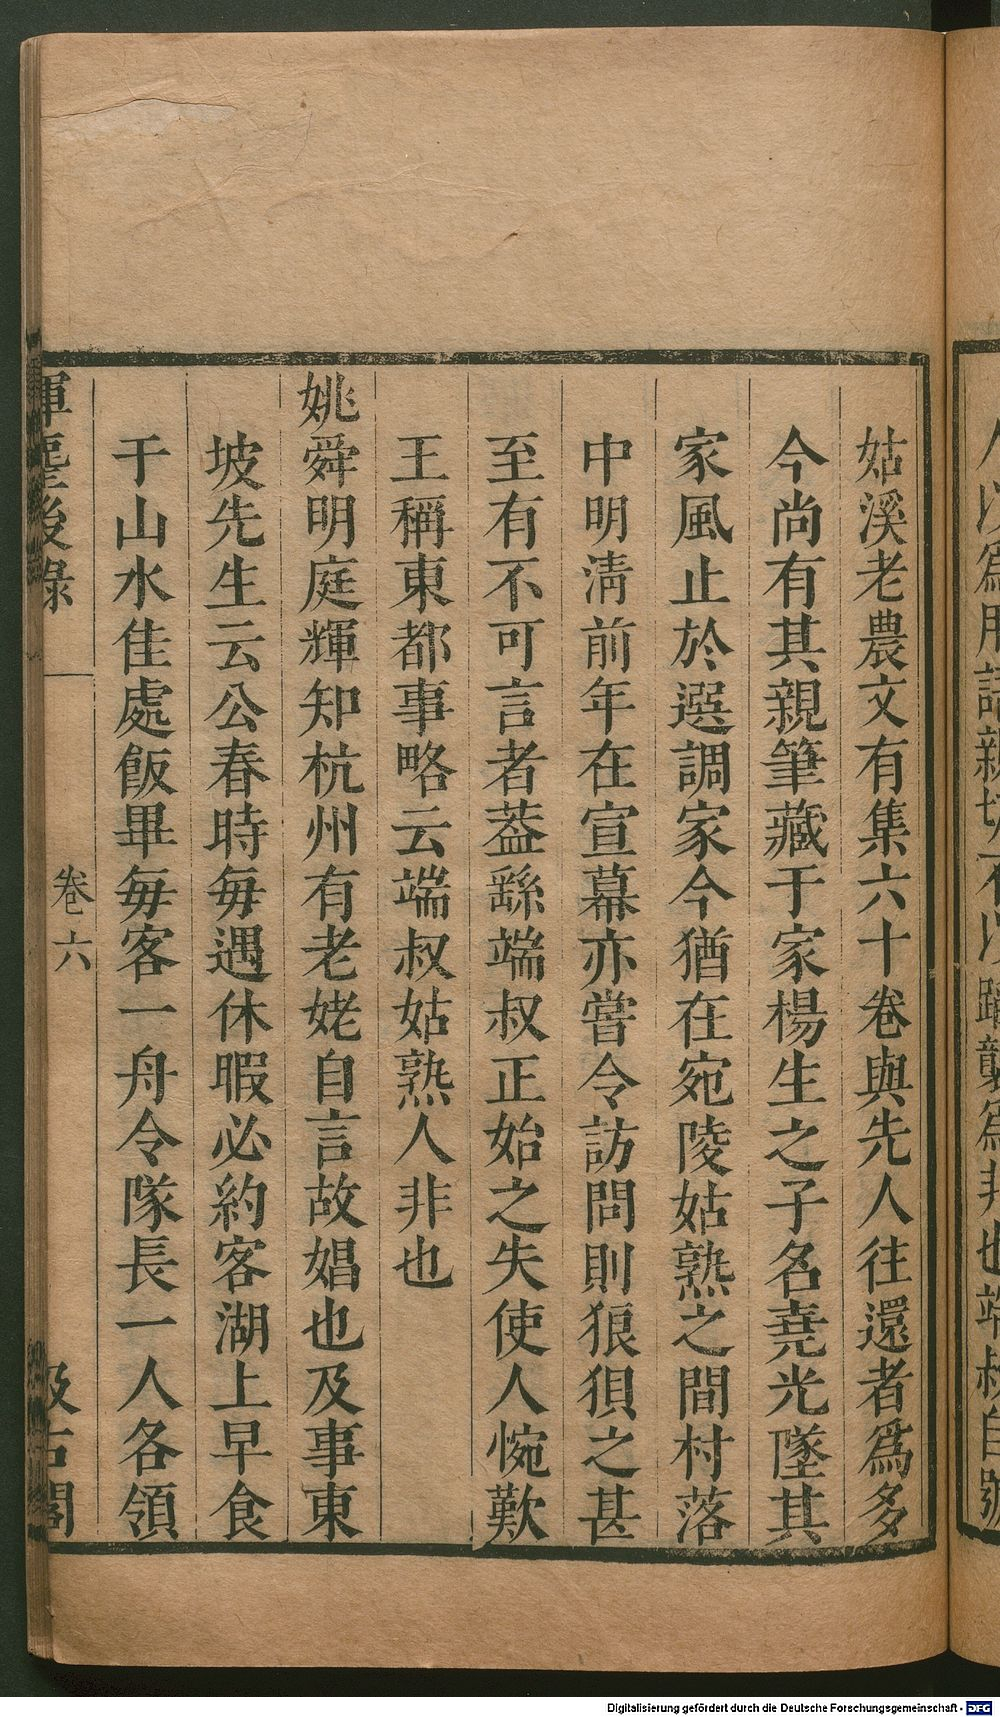 姑溪老農文有集六十卷與先人往還者爲多
今尚有其親筆藏于家楊生之子名堯光墜其
家風止於選調家今猶在宛陵姑熟之間村落
中明淸前年在宣幕亦嘗令訪問則狼狽之甚
至有不可言者葢繇端叔正始之失使人惋歎
王稱東都事略云端叔姑熟人非也
姚舜明庭輝知杭州有老姥自言故娼也及事東
坡先生云公春時每遇休暇必約客湖上早食
于山水佳處飯畢每客一舟令隊長一人各領
揮麈後錄 卷六 汲古閣
Digitalisierung gefördert durch die Deutsche Forschungsgemeinschaft - DFG